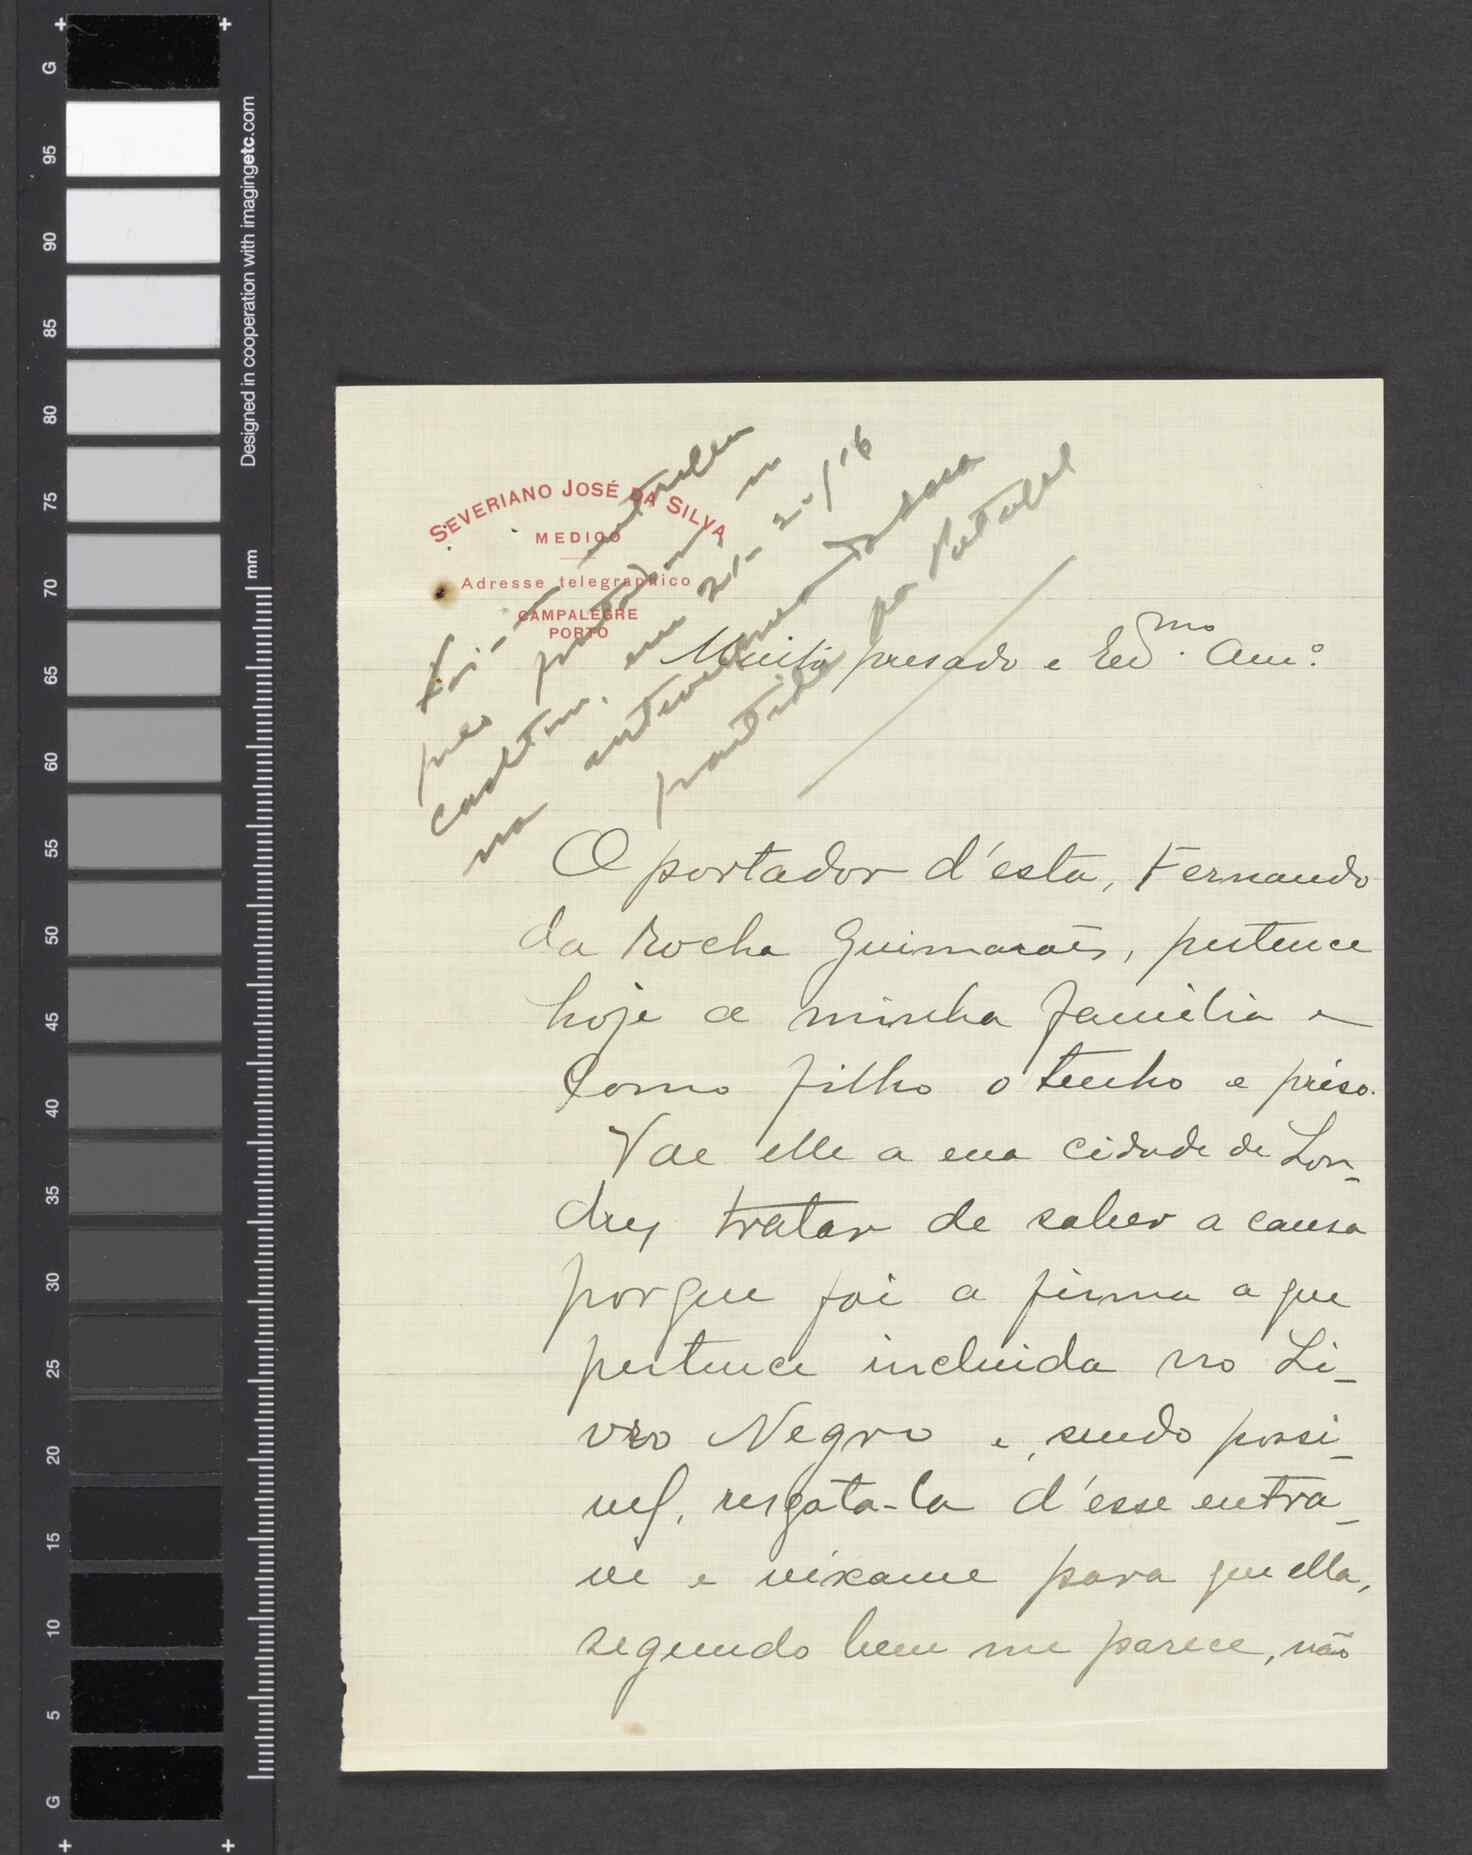 SEVERIANO JOSÉ DA SILVA
MEDICO
Adresse telegraphico
CAMPALEGRE
PORTO
Foi-
pelo
em 21-2-/16
na
partida para Portugal
Muito presado e Amº
O portador d'esta, Fernando
da Rocha Guimarães, pertence
hoje a minha familia e
como filho o tenho e préso.
Vae elle a essa cidade de Lon-
dres tratar de saber a causa
porque foi a firma a que
pertence incluida no Li-
vro Negro e, sendo possi-
vel, resgata-la d'esse entra-
ve e vexame para que ella,
segundo bem me parece, não
G
95
90
85
80
75
70
65
60
55
50
45
40
35
30
25
20
15
10
5
G
Designed in cooperation with imagingetc.com
mm